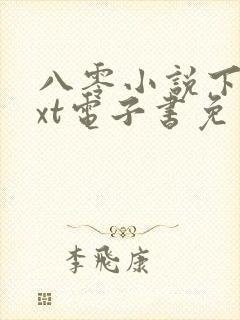 八零小說下
xt電子書免
李飛康